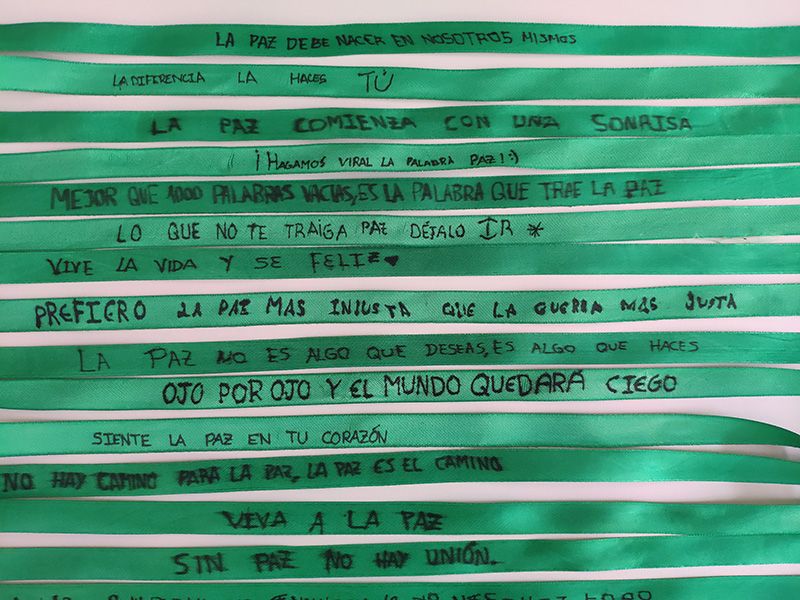 LA PAZ DEBE NACER EN NOSOTROS MISMOS
LA DIFERENCIA LA HACES TÚ
LA PAZ COMIENZA CON UNA SONRISA
¡HAGAMOS VIRAL LA PALABRA PAZ! :)
MEJOR QUE 1000 PALABRAS VACIAS, ES LA PALABRA QUE TRAE LA PAZ
LO QUE NO TE TRAIGA PAZ DÉJALO IR *
VIVE LA VIDA Y SE FELIZ ♥
PREFIERO LA PAZ MAS INJUSTA QUE LA GUERRA MAS JUSTA
LA PAZ NO ES ALGO QUE DESEAS, ES ALGO QUE HACES
OJO POR OJO Y EL MUNDO QUEDARÁ CIEGO
SIENTE LA PAZ EN TU CORAZÓN
NO HAY CAMINO PARA LA PAZ, LA PAZ ES EL CAMINO
VIVA A LA PAZ
SIN PAZ NO HAY UNIÓN.